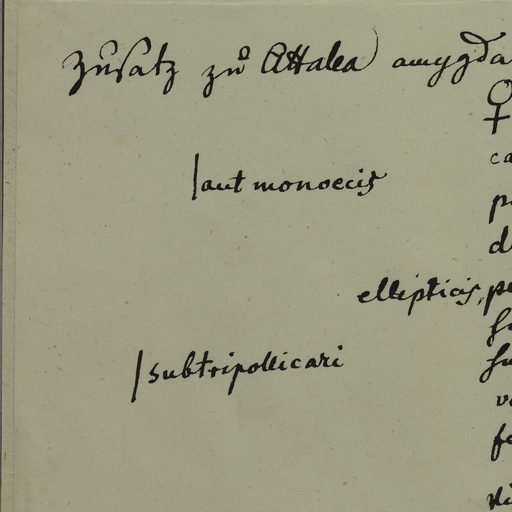 Zusatz zu Attalea amygda
♀
ca
|aut monoecis
ellipticis, pe
|subtripollicari